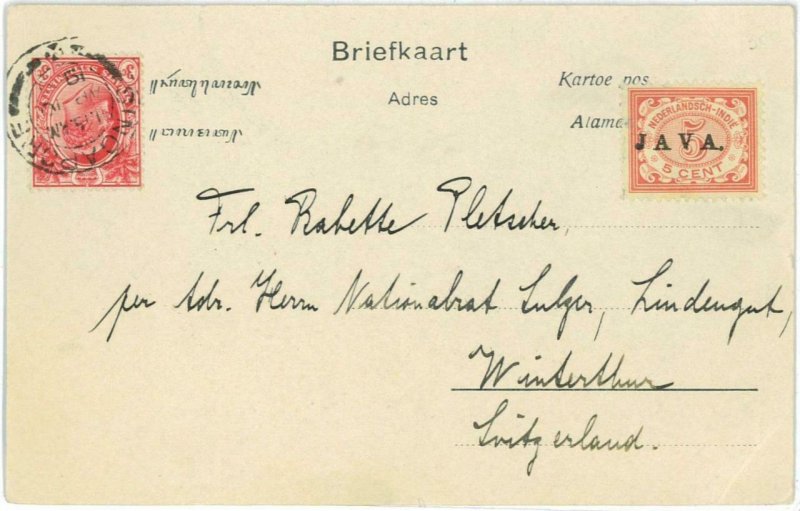 Briefkaart
Kartoe pos
Adres
Alame
NEDERLANDSCH-INDIE
5
JAVA.
5 CENT
Frl. Babette Pletscher,
per Adr. Herrn Nationalrat Sulzer, Lindengut,
Winterthur
Svitzerland.